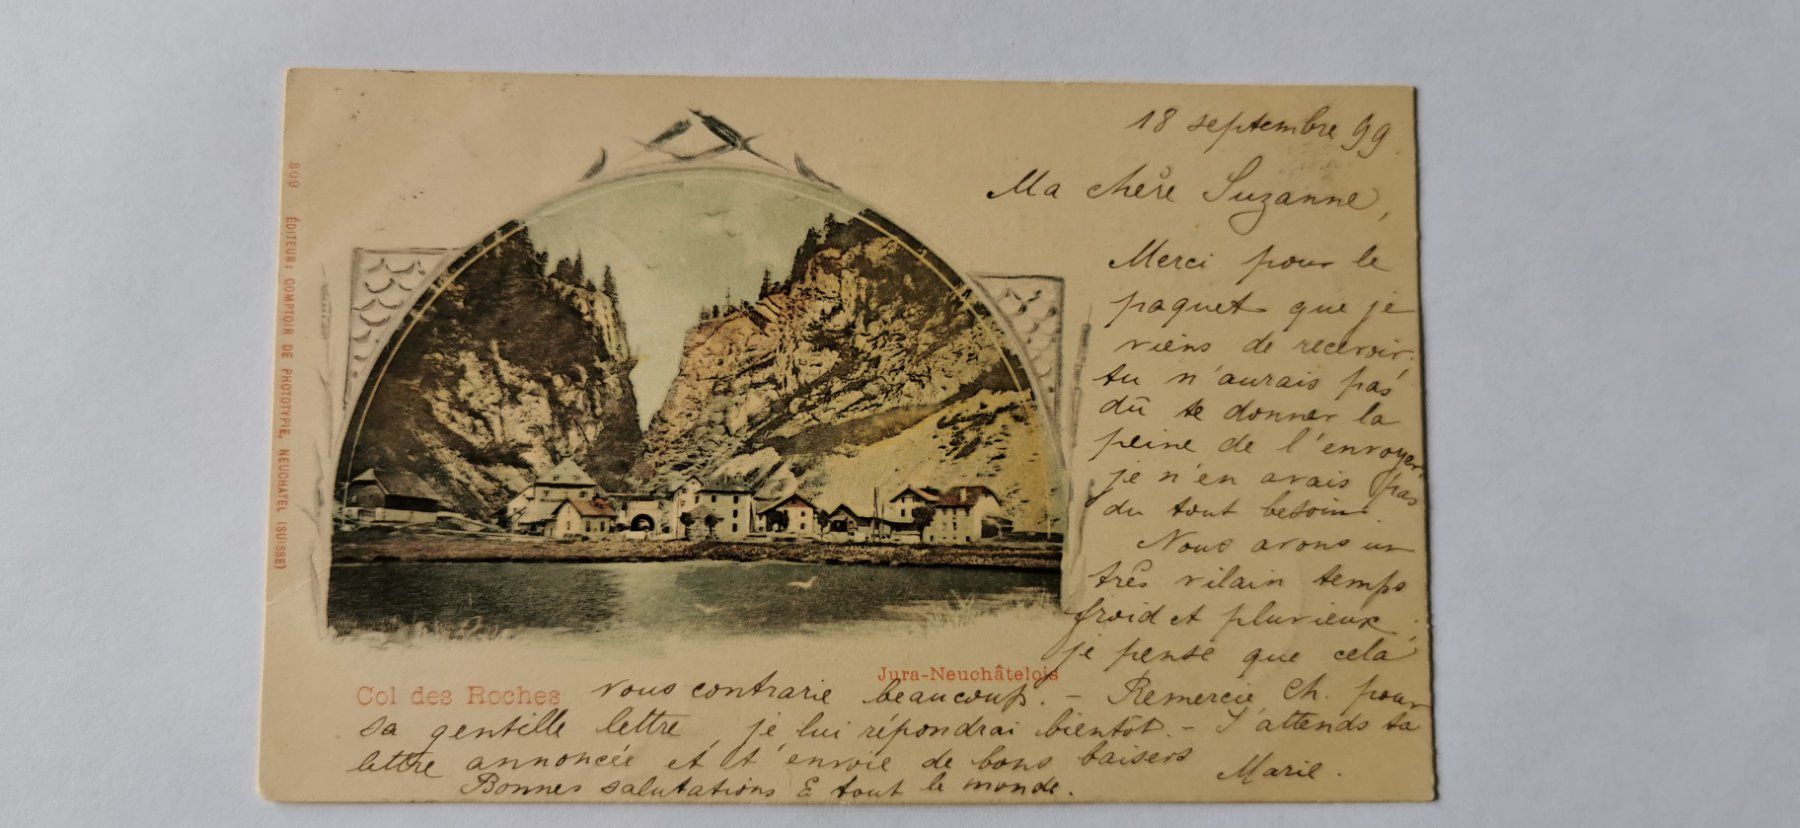 18 septembre 99
Ma chère Suzanne,
Merci pour le
paquet que je
viens de recevoir.
tu n'aurais pas
dû te donner la
peine de l'envoyer
je n'en avais pas
du tout besoin.
Nous avons un
très vilain temps
froid et pluvieux.
je pense que cela
vous contrarie beaucoup. - Remercie Ch. pour
sa gentille lettre, je lui répondrai bientôt. - J'attends ta
lettre annoncée et t'envoie de bons baisers Marie.
Bonnes salutations à tout le monde.
Col des Roches
Jura-Neuchâtelois
809 ÉDITEUR: COMPTOIR DE PHOTOTYPIE, NEUCHATEL (SUISSE)